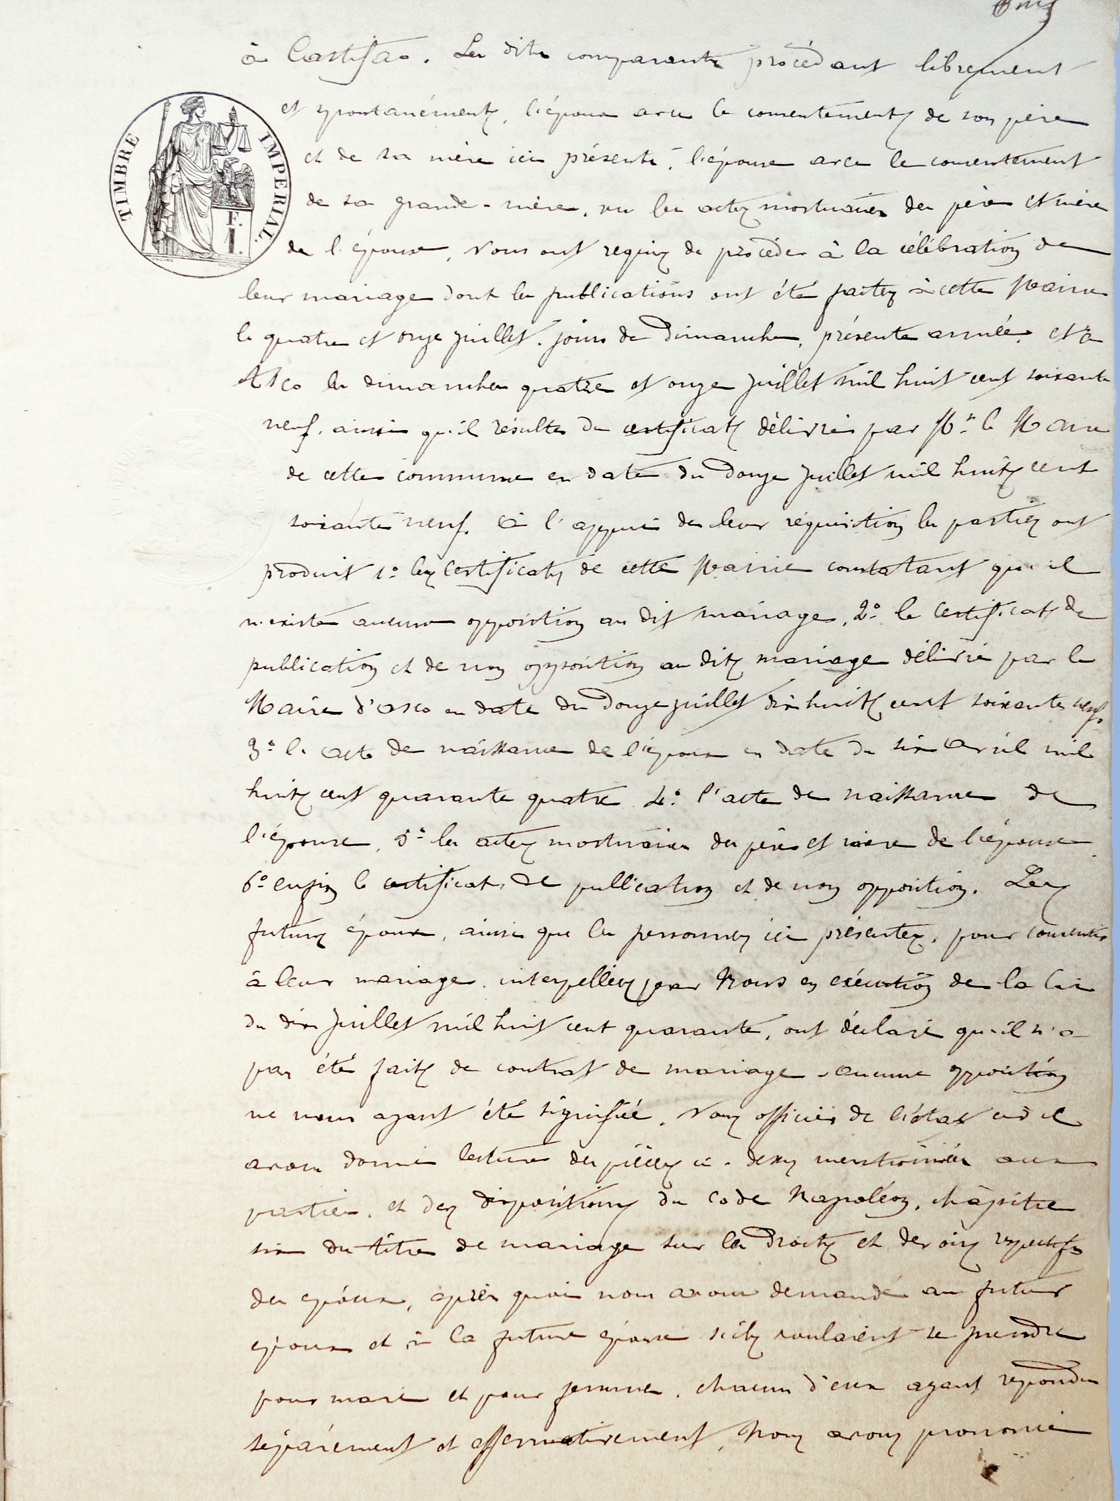 à Castifao. Les dits comparants procédant librement
TIMBRE IMPERIAL.
F.
1.
et spontanément, l'époux avec le consentement de son père
et de sa mère ici présents, l'épouse avec le consentement
de sa grande-mère, vu les actes mortuaires des père et mère
de l'épouse, Nous ont requis de procéder à la célébration de
leur mariage dont les publications ont été faites à cette Mairie
le quatre et onze juillet, jours de Dimanche, présente année, et à
Asco les dimanches quatre et onze juillet mil huit cent soixante
neuf, ainsi qu'il résulte du certificat délivré par Mr. le Maire
de cette commune en date du Douze juillet mil huit cent
soixante neuf. à l'appui de leur réquisition les parties ont
produit 1º les Certificats de cette Mairie constatant qu'il
n'existe aucune opposition au dit mariage, 2º le Certificat de
publication et de non opposition au dit mariage délivré par le
Maire d'Asco en date du Douze juillet dix huit cent soixante neuf
3º l'acte de naissance de l'époux en date du six Avril mil
huit cent quarante quatre 4º l'acte de naissance de
l'épouse, 5º les actes mortuaires des père et mère de l'épouse
6º enfin le certificat de publication et de non opposition. Les
futurs époux, ainsi que les personnes ici présentes, pour consentir
à leur mariage, interpellés par Nous en exécution de la loi
du dix juillet mil huit cent quarante, ont déclaré qu'il n'a
pas été fait de contrat de mariage, aucune opposition
ne nous ayant été signifiée, Nous officier de l'état civil
avons donné lecture des pièces ci-dessus mentionnées aux
parties, et des dispositions du Code Napoléon, chapitre
six du titre de mariage sur les Droits et devoirs respectifs
des époux, après quoi nous avons demandé au futur
époux et à la future épouse s'ils voulaient se prendre
pour mari et pour femme, chacun d'eux ayant répondu
séparément et affirmativement, Nous avons prononcé